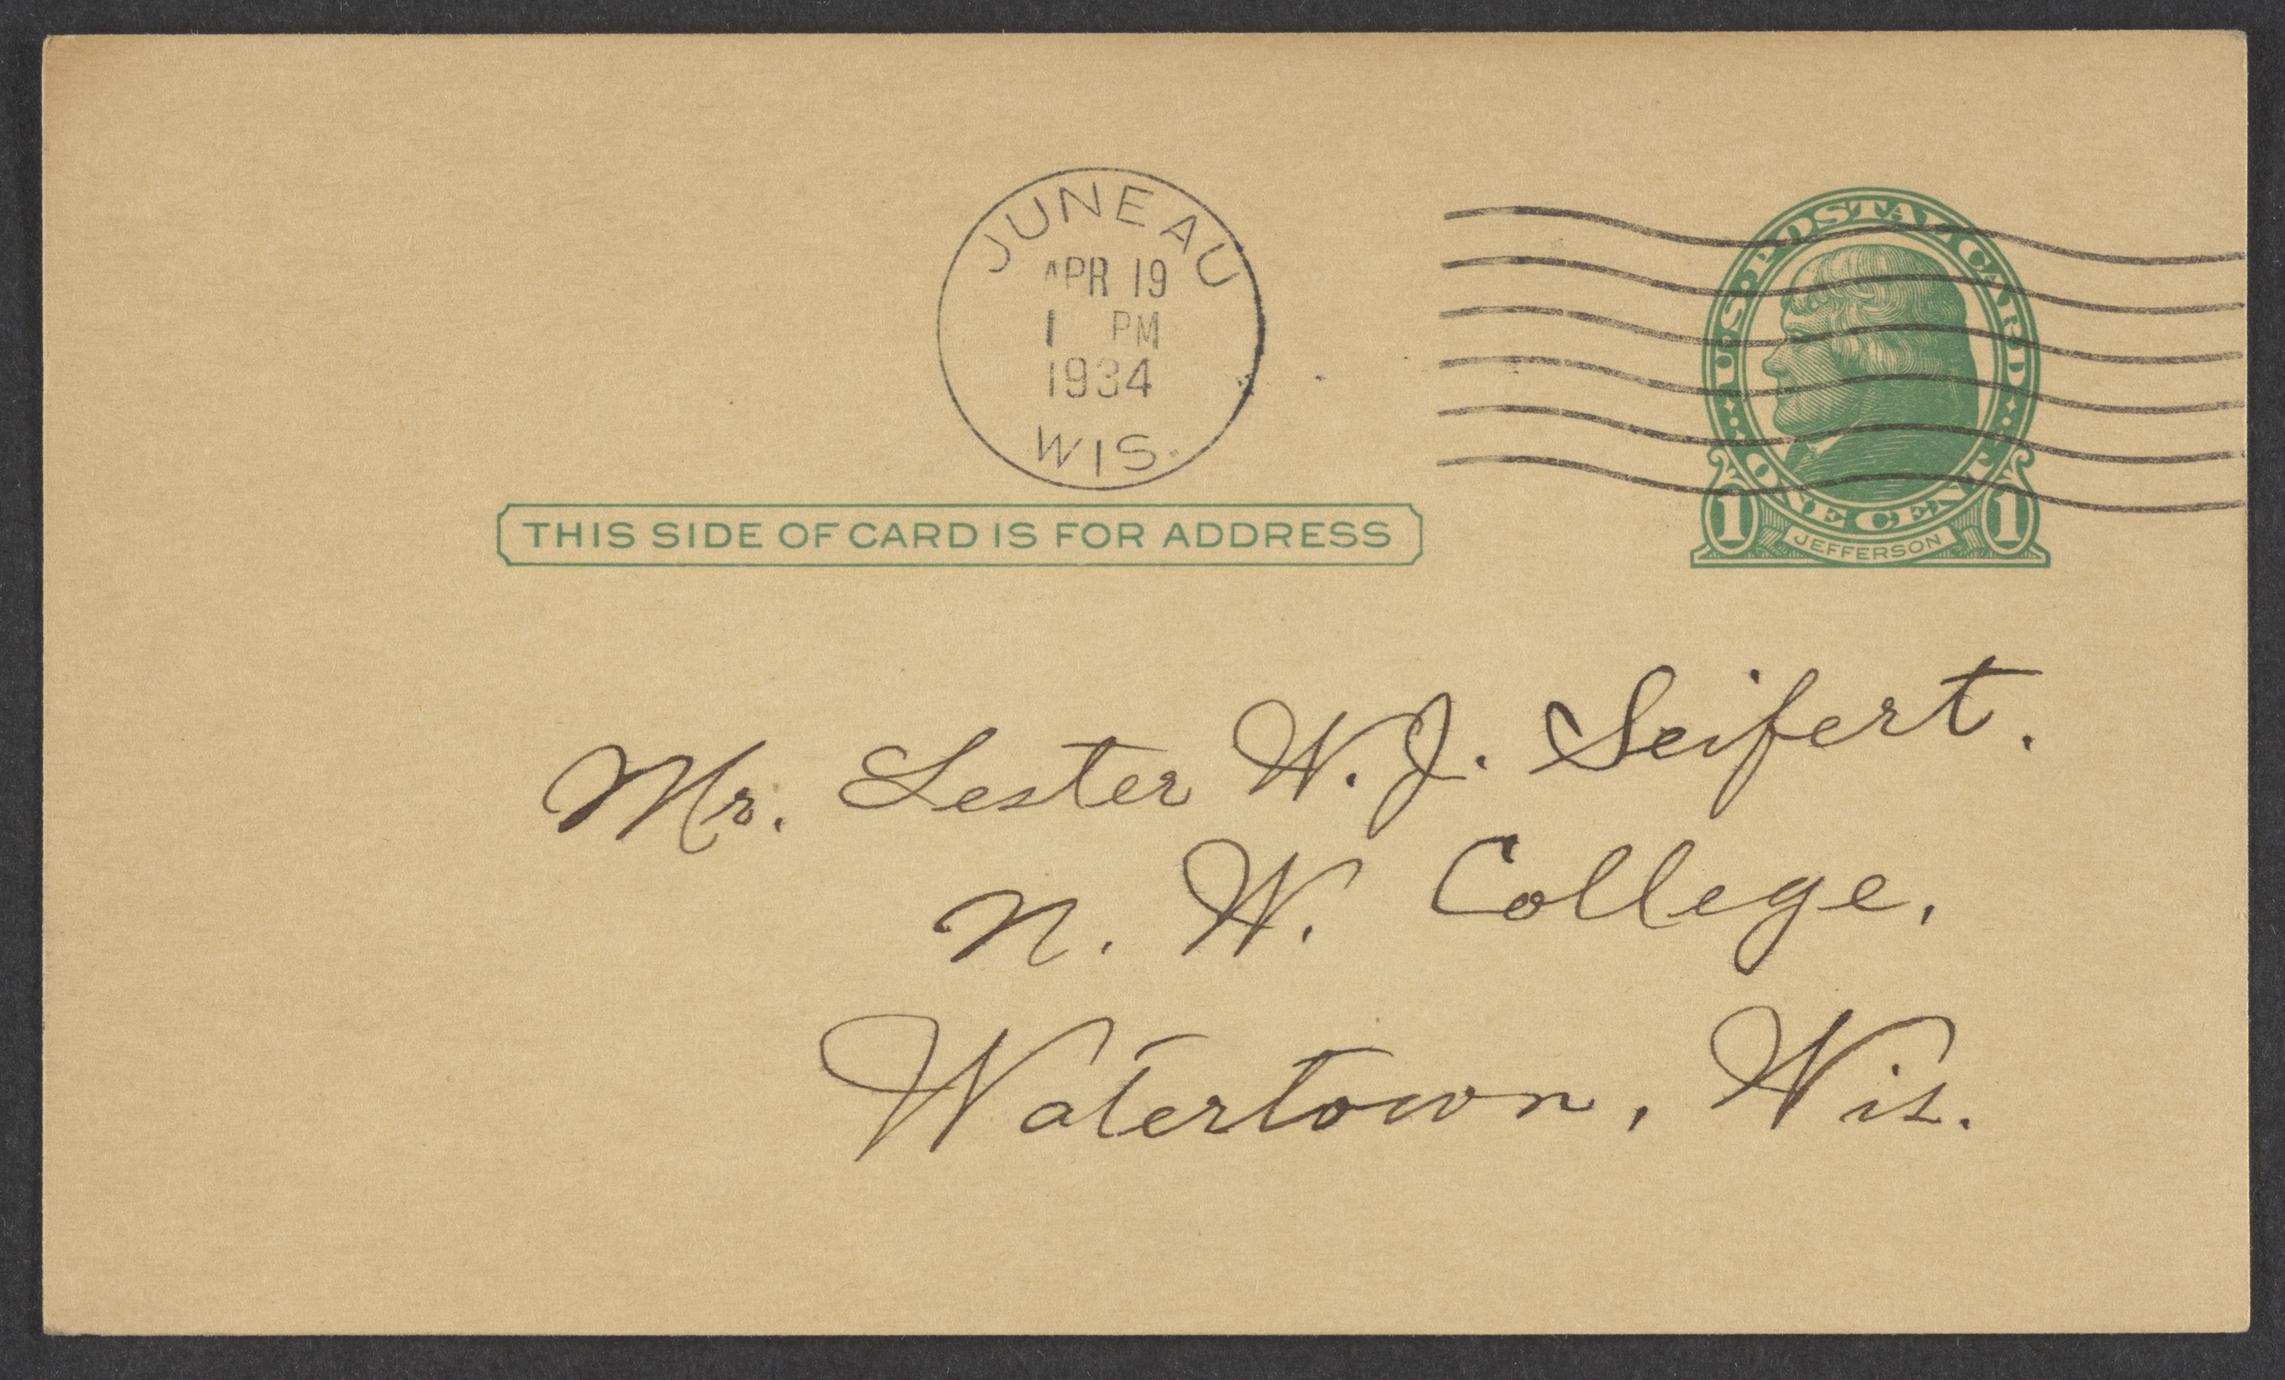 JUNEAU
APR 19
1 PM
1934
WIS.
U.S. POSTAL CARD
ONE CENT
1 JEFFERSON 1
THIS SIDE OF CARD IS FOR ADDRESS
Mr. Lester W. J. Seifert.
N. W. College,
Watertown, Wis.